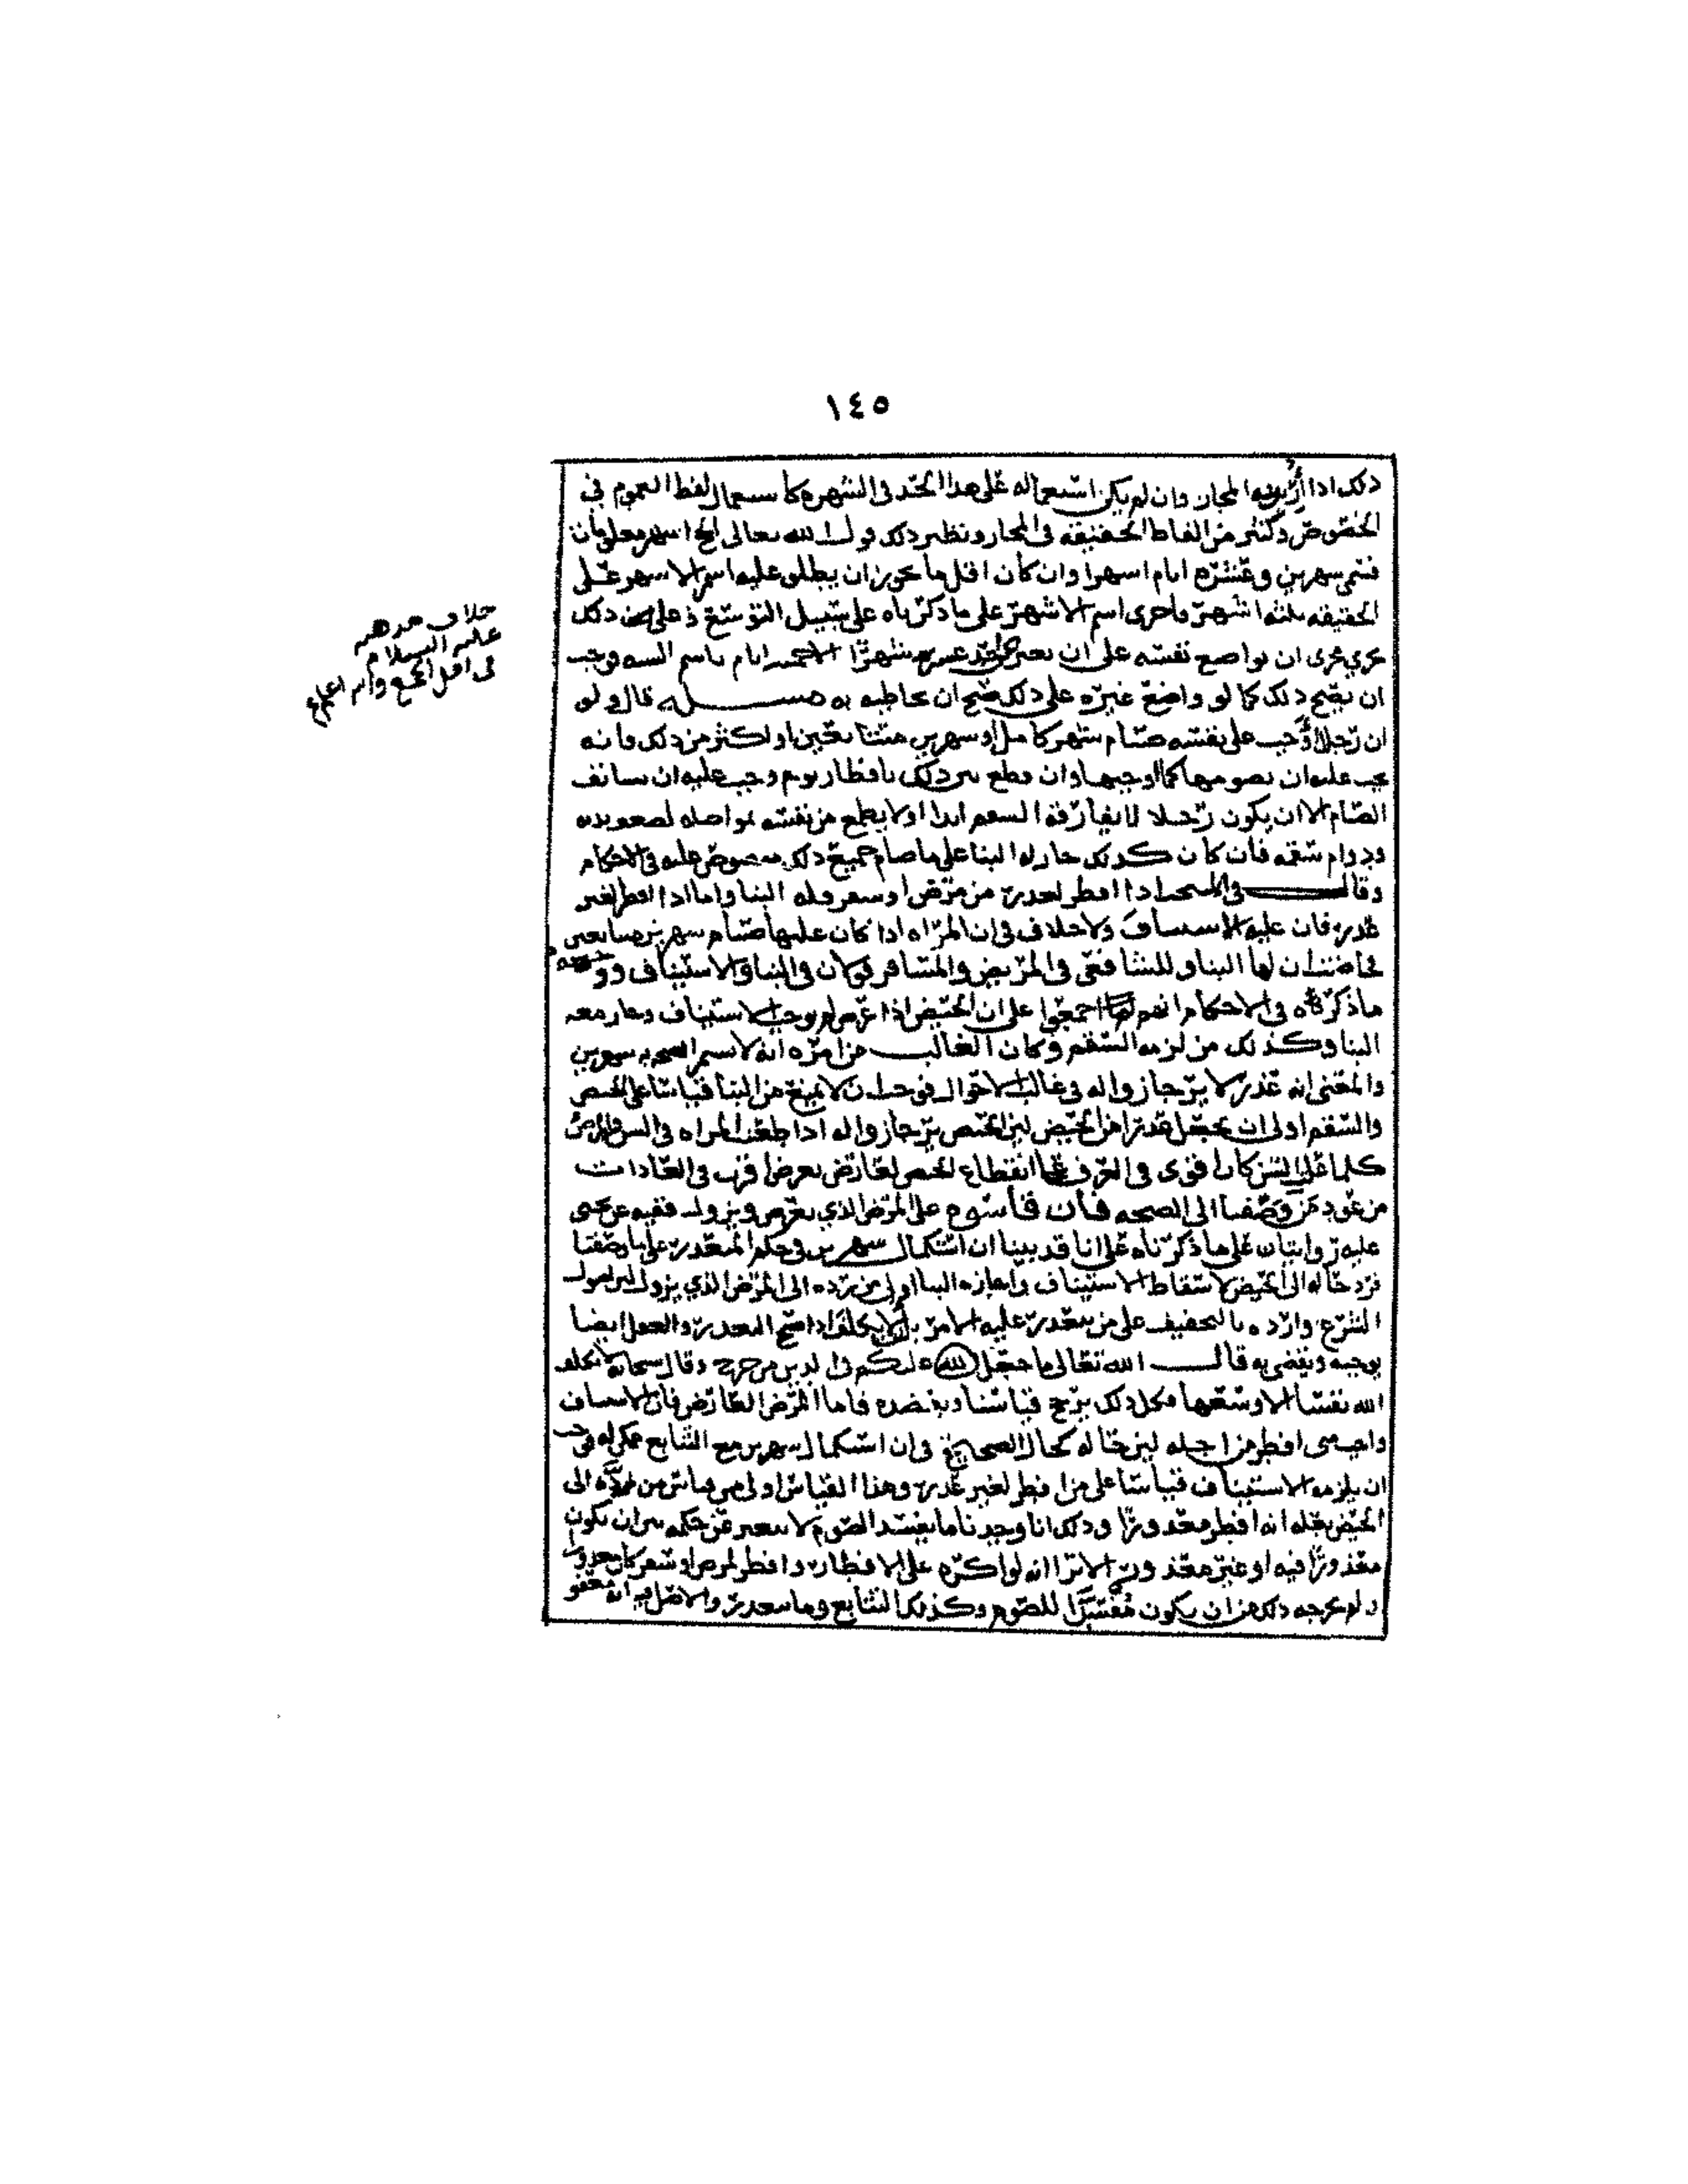 ١٤٥
ذلك اذا اريد به المجاز وان لم يكن استعماله على هذا الحد في الشهره كاستعمال لفظ العموم في
الخصوص وكثير من الفاظ الحقيقه في المجاز ونظير ذلك قول الله تعالى الحج اشهر معلومات
فسمى شهرين وعشره ايام اشهرا وان كان اقل ما يجوز ان يطلق عليه اسم الاشهر على
الحقيقه ثلثه اشهر واجرى اسم الاشهر على ما ذكرناه على سبيل التوسع ذلك
يجري مجرى ان يواضع نفسه على ان يعبر عن احد عشر شهرا الا خمسه ايام باسم السنه وجب
ان يصح ذلك كما لو واضع غيره على ذلك صح ان يخاطبه به مسـله قال ولو
ان رجلا اوجب على نفسه صيام شهر كامل او شهرين متتابعين او اكثر من ذلك فانه
يجب عليه ان يصومها كما اوجبها وان قطع بين ذلك بافطار يوم وجب عليه ان يستانف
الصيام الا ان يكون رجلا لا يفارقه السقم ابدا او لا يطمع من نفسه بمواصله لصعوبه
ودوام سقمه فان كان كذلك جاز له البنا على ما صام جميع ذلك منصوص عليه في الاحكام
وقال في المنتخب اذا افطر لعذر من مرض او سفر فله البنا واما اذا افطر لغير
عذر فان عليه الاستيناف ولا خلاف في ان المراه اذا كان عليها صيام شهرين متتابعين
فحاضت ان لها البنا وللشافعي في المريض والمسافر قولان في البنا والاستيناف ووجه
ما ذكرناه في الاحكام انهم لما اجمعوا على ان الحيض اذا عرض لم يوجب الاستيناف وجاز معه
البنا وكذلك من لزمه السقم وكان الغالب من امره انه لا تستمر الصحه به شهرين
والمعنى انه عذر لا يرجا زواله في غالب الاحوال فوجب ان لا يمنع من البنا قياسا على الحيض
والسقم اولى ان يجعل عذرا من الحيض لان الحيض يرجا زواله اذا طعنت المراه في السن والمرض
كلما علت السن كان اقوى في العرف انقطاع الحيض لعارض يعرض اقرب في العادات
من عود من وصفنا الى الصحه فان قاسوه على المرض الذي يعرض ويزول ففيه عن يحيى
عليه روايتان على ما ذكرناه على انا قد بينا ان استكمال شهرين في حكم المتعذر على ما وصفنا
فرد حاله الى الحيض لاسقاط الاستيناف واجازه البنا اولى من رده الى المرض الذي يزول لان اصول
الشرع وارده بالتخفيف على من يتعذر عليه الامر بل لا يكلف اذا صح التعذر والعقول ايضا
يوجبه ويقضي به قال الله تعالى ما جعل الله عليكم في الدين من حرج وقال سبحانه لا يكلف
الله نفسا الا وسعها فكل ذلك يرجح قياسنا ويعضده فاما المرض العارض فان الاستيناف
واجب متى افطر من اجله لان حاله كحال الصحيح في ان استكمال شهرين مع التتابع ممكن له فوجب
ان يلزمه الاستيناف قياسا على من افطر لغير عذر وهذا القياس اولى من قياس من رده الى
الحيض بعله انه افطر معذورا وذلك انا وجدنا ما يفسد الصوم لا يتغير عن حكمه بين ان يكون
معذورا فيه او غير معذور الا ترا انه لو اكره على الافطار او افطر لمرض او سفر كان معذورا
ولم يخرجه ذلك من ان يكون مفسدا للصوم وكذلك التتابع وما يتعذر والاصل فيه انه معفو
خلاف مذهبه
عليه السلام
في اقل الجمع والله اعلم